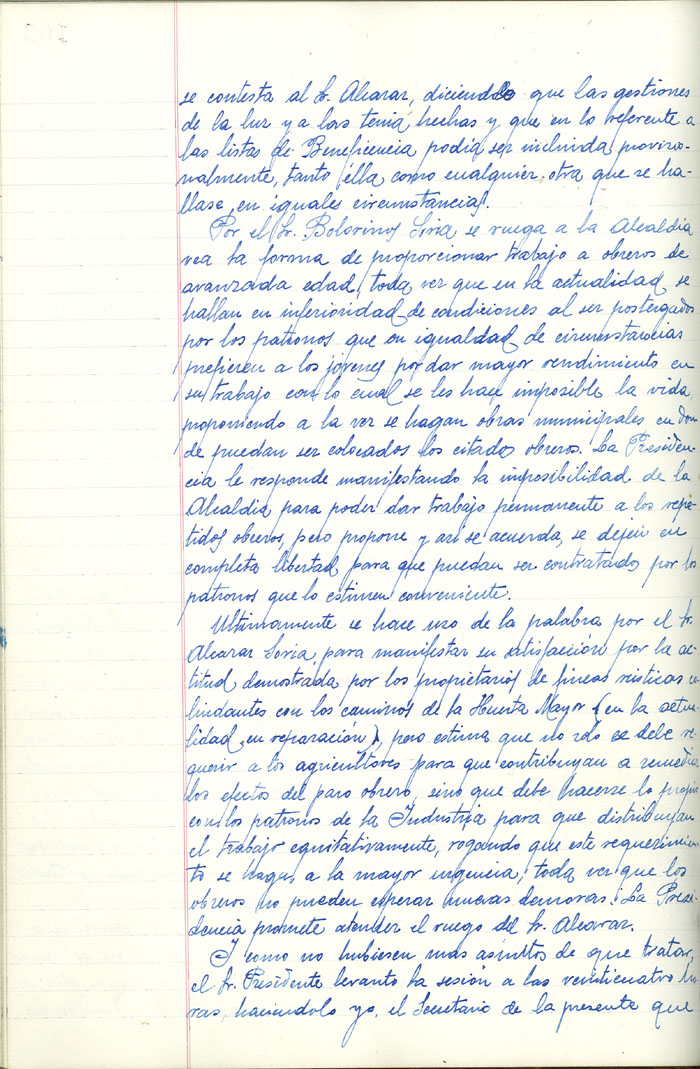 se contesta al Sr. Alcaraz, diciendole que las gestiones
de la luz ya las tenia hechas y que en lo referente a
las listas de Beneficencia podia ser incluida proviso-
nalmente, tanto élla como cualquier otra que se ha-
llase en iguales circunstancias.
Por el Sr. Bolarinos Soria se ruega a la Alcaldia
vea la forma de proporcionar trabajo a obreros de
avanzada edad, toda vez que en la actualidad se
hallan en inferioridad de condiciones al ser postergados
por los patronos que en igualdad de circunstancias
prefieren a los jóvenes por dar mayor rendimiento en
su trabajo con lo cual se les hace imposible la vida,
proponiendo a la vez se hagan obras municipales en don
de puedan ser colocados los citados obreros. La Presiden-
cia le responde manifestando la imposibilidad de la
Alcaldia para poder dar trabajo permanente a los repe-
tidos obreros, pero propone y asi se acuerda, se dejen en
completa libertad para que puedan ser contratados por los
patronos que lo estimen conveniente.
Ultimamente se hace uso de la palabra por el Sr.
Alcaraz Soria para manifestar su satisfacción por la ac-
titud demostrada por los propietarios de fincas rústicas co
lindantes con los caminos de la Huerta Mayor (en la actua-
lidad en reparación), pero estima que no solo se debe re-
querir a los agricultores para que contribuyan a remediar
los efectos del paro obrero, sino que debe hacerse lo propio
con los patronos de la Industria para que distribuyan
el trabajo equitativamente, rogando que este requerimien-
to se haga a la mayor urgencia, toda vez que los
obreros no pueden esperar nuevas demoras. La Presi-
dencia promete atender el ruego del Sr. Alcaraz.
I como no hubiesen mas asuntos de que tratar,
el Sr. Presidente levanto la sesión a las veinticuatro ho
ras, haciendolo yo, el Secretario de la presente que